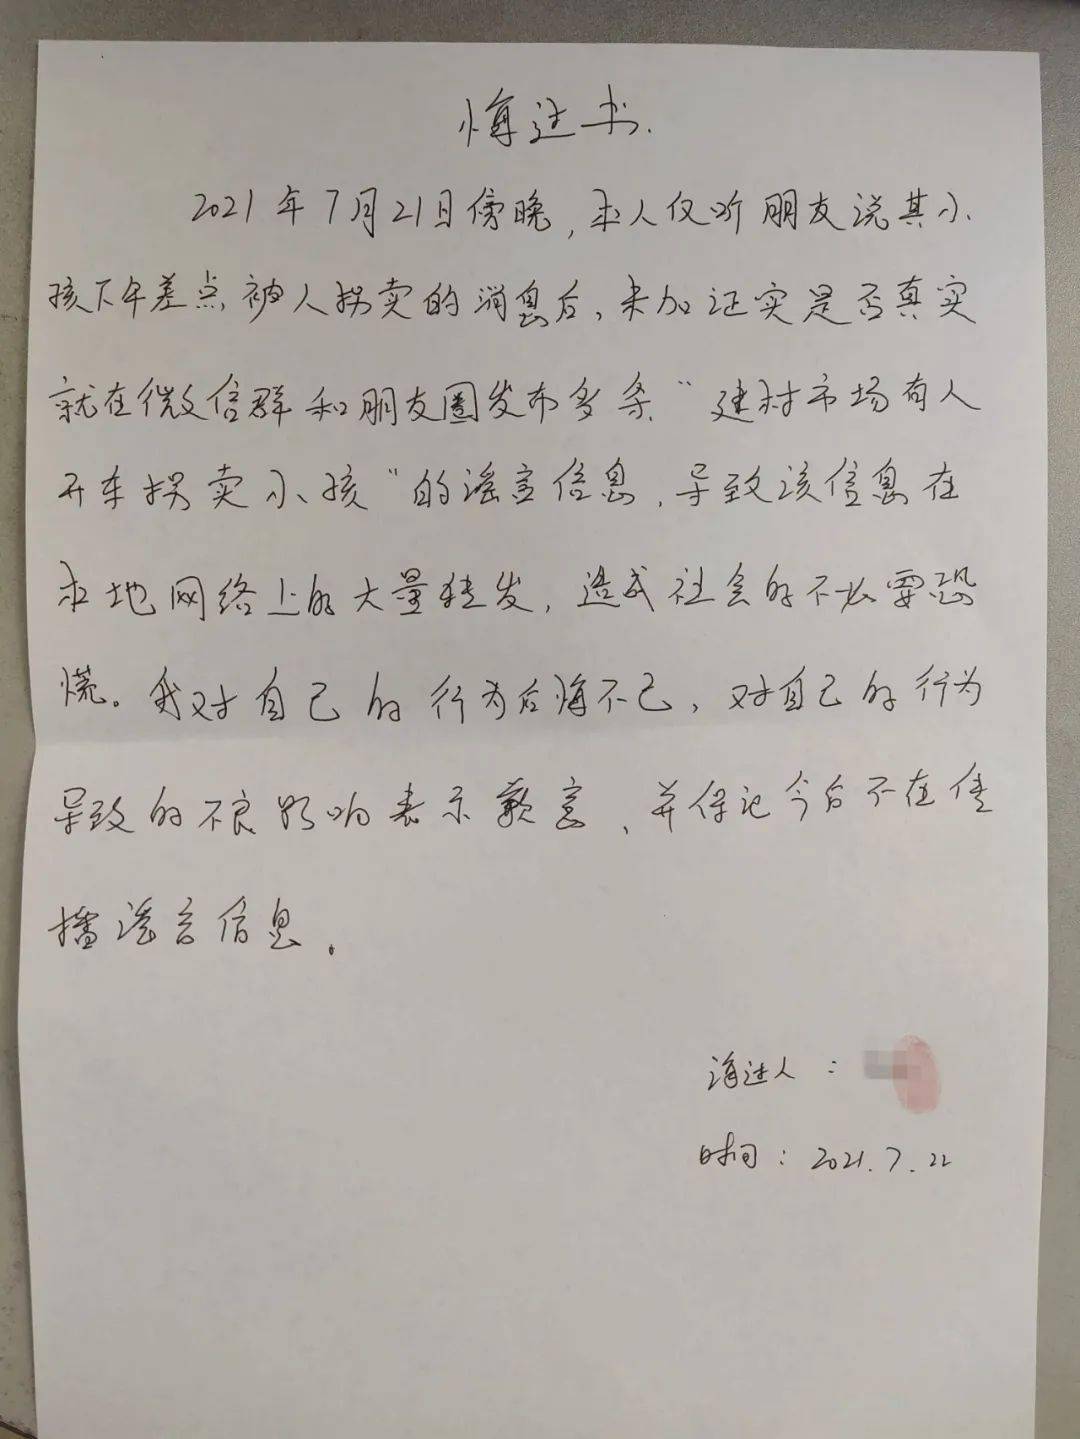 悔过书.
2021年7月21日傍晚,本人仅听朋友说其小
孩下午差点被人拐卖的消息后,未加证实是否真实
就在微信群和朋友圈发布多条“建材市场有人
开车拐卖小孩”的谣言信息,导致该信息在
本地网络上的大量转发,造成社会的不必要恐
慌。我对自己的行为后悔不已,对自己的行为
导致的不良影响表示歉意,并保记今后不在传
播谣言信息。
悔过人:
时间:2021.7.22